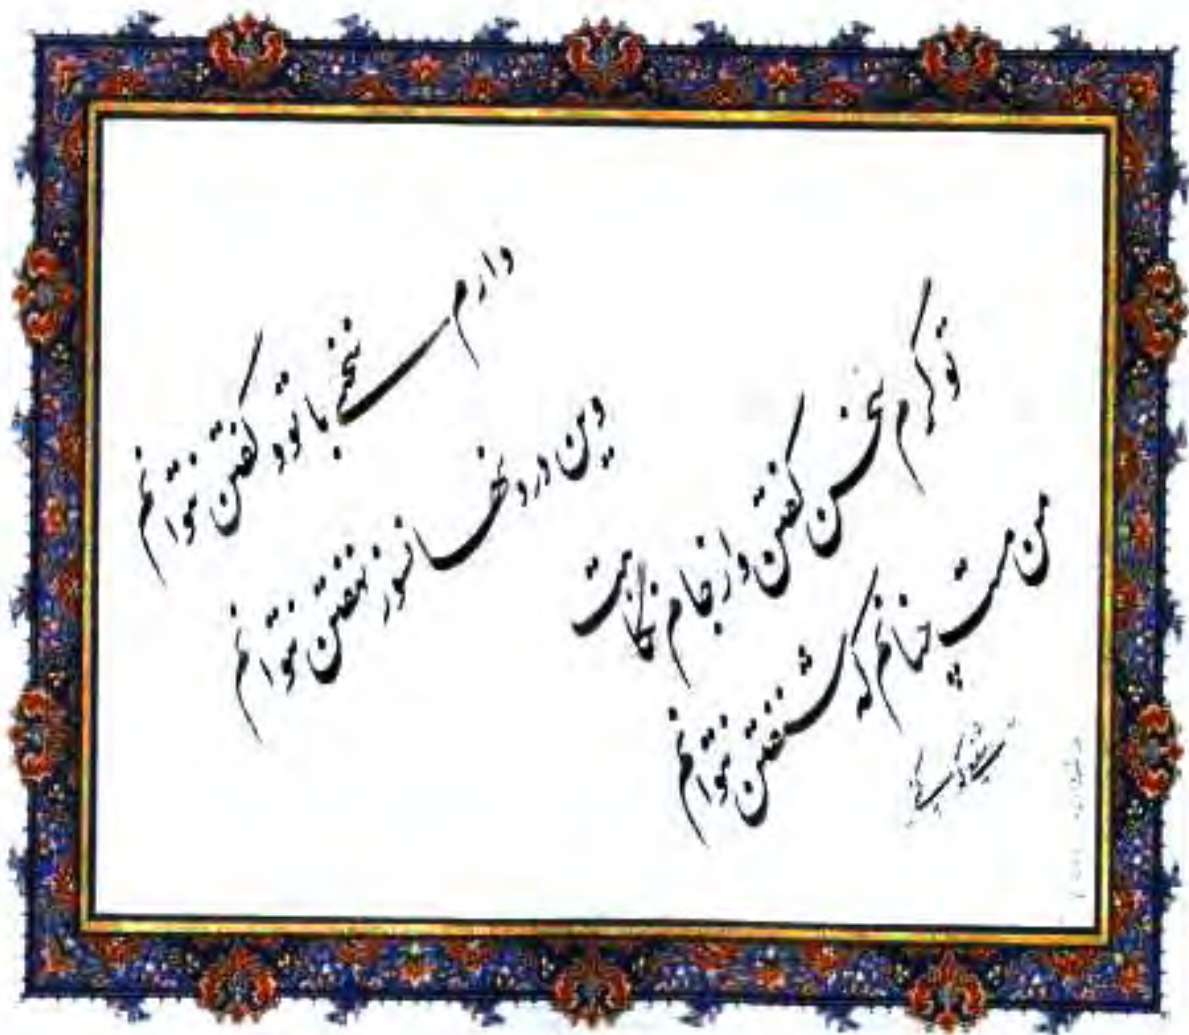 دارم سخنی با تو و گفتن نتوانم
وین درد نهانسوز نهفتن نتوانم
تو گرم سخن گفتن و از جام نگاهت
من مست چنانم که شنفتن نتوانم